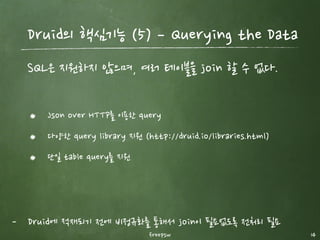 Druid의 핵심기능 (5) - Querying the Data
SQL은 지원하지 않으며, 여러 테이블을 join 할 수 없다.
Json over HTTP를 이용한 query
다양한 query library 지원 (http://druid.io/libraries.html)
단일 table query를 지원
- Druid에 적재되기 전에 비정규화를 통해서 join이 필요없도록 전처리 필요
freepsw
16